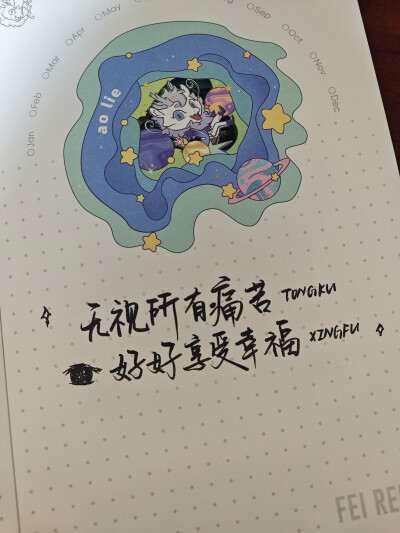 Jan
Feb
Mar
Apr
May
Sep
Oct
Nov
Dec
ao lie
无视所有痛苦 TONGKU
好好享受幸福 XINGFU
FEI RE